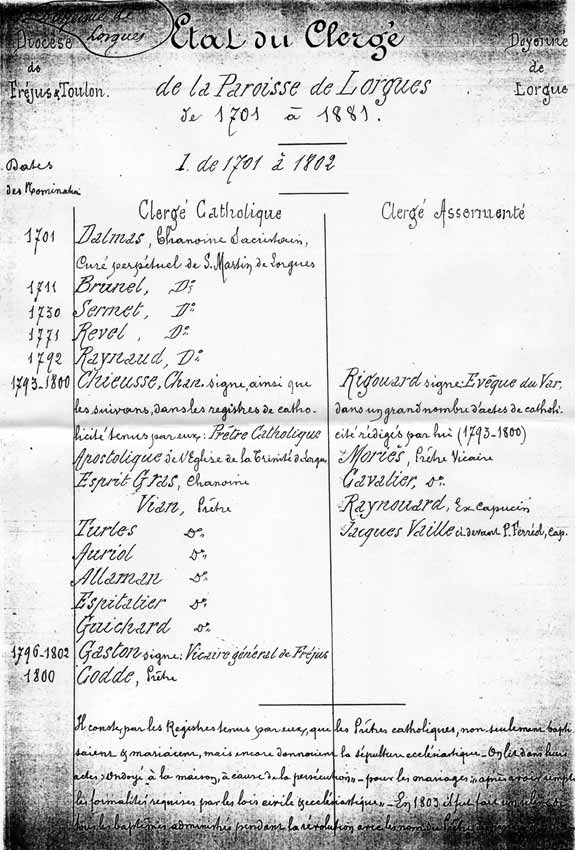 Doyenné de
Lorgues
Diocèse
de
Fréjus & Toulon.
Etat du Clergé
de la Paroisse de Lorgues
de 1701 à 1881.
Doyenné
de
Lorgue
I. de 1701 à 1802
Dates
des Nominatn
Clergé Catholique
Clergé Assermenté
1701 Dalmas, Chanoine Sacristain,
Curé perpétuel de S. Martin de Lorgues
1711 Brunel, Do
1730 Sermet, Do
1771 Revel, Do
1792 Raynaud, Do
1793-1800 Chieusse, Chan. signe, ainsi que
les suivans, dans les registres de catho-
licité tenus par eux: Prêtre Catholique
Apostolique de l'Eglise de la Trinité de Lorgues
Esprit Gras, Chanoine
Vian, Prêtre
Turles do
Auriol do
Allaman do
Espitalier do
Guichard do
1796-1802 Gaston signe: Vicaire général de Fréjus
1800 Codde, Prêtre
Rigouard signe: Evêque du Var,
dans un grand nombre d'actes de catholi-
cité rédigés par lui (1793-1800)
Moriès, Prêtre Vicaire
Cavalier, do
Raynouard, Ex Capucin
Jacques Vaille ci devant P. Ferréol, Cap.
Il conste, par les Registres tenus par eux, que les Prêtres catholiques, non seulement bapti-
saient & mariaient, mais encore donnaient la sépulture ecclésiastique - On lit dans leurs
actes: ondoyé à la maison, à cause de la persécution - pour les mariages: après avoir rempli
les formalités requises par les lois civile & ecclésiastique. - En 1803 il fut fait un
tous les baptêmes administrés pendant la révolution avec les nom du Prêtre